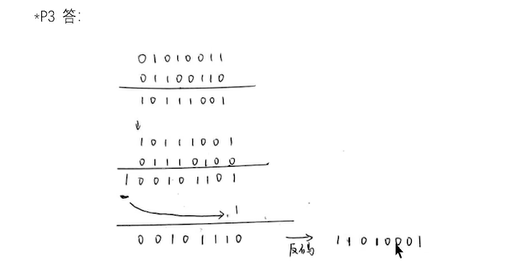 *P3 答:
01010011
01100110
10111001
10111001
01110100
100101101
1
00101110 反码 11010001